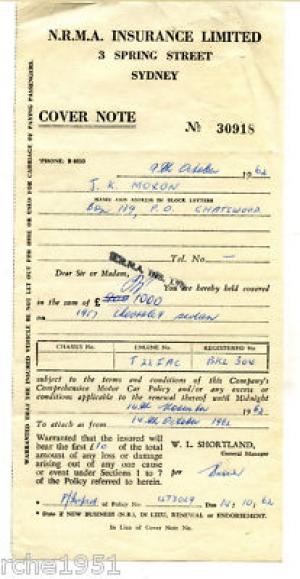 N.R.M.A. INSURANCE LIMITED
3 SPRING STREET
SYDNEY
COVER NOTE
No 30918
'PHONE: B 0550
9th October 1962
J. K. MORON
NAME AND ADDRESS IN BLOCK LETTERS
Box 139, P.O. CHATSWOOD
Tel. No. —
N.R.M.A. INS. LTD.
Dear Sir or Madam,
You are hereby held covered
in the sum of £ 1000
on 1957 Chevrolet sedan
CHASSIS NO. ENGINE NO. REGISTERED NO.
BKL 304
subject to the terms and conditions of this Company's
Comprehensive Motor Car Policy and/or any excess or
conditions applicable to the renewal thereof until Midnight
14th November 1962
To attach as from 14th October 1962
Warranted that the insured will
bear the first £10 of the total
amount of any loss or damage
arising out of any one cause
or event under Sections 1 to 7
of the Policy referred to herein.
W. L. SHORTLAND,
General Manager
per
of Policy No. 473029 Due 14. 10. 62
* State if NEW BUSINESS (N.B.), IN LIEU, RENEWAL or ENDORSEMENT.
In Lieu of Cover Note No.
WARRANTED THAT THE INSURED VEHICLE BE NOT LET OUT FOR HIRE OR USED FOR CARRIAGE OF PAYING PASSENGERS.
rche1951